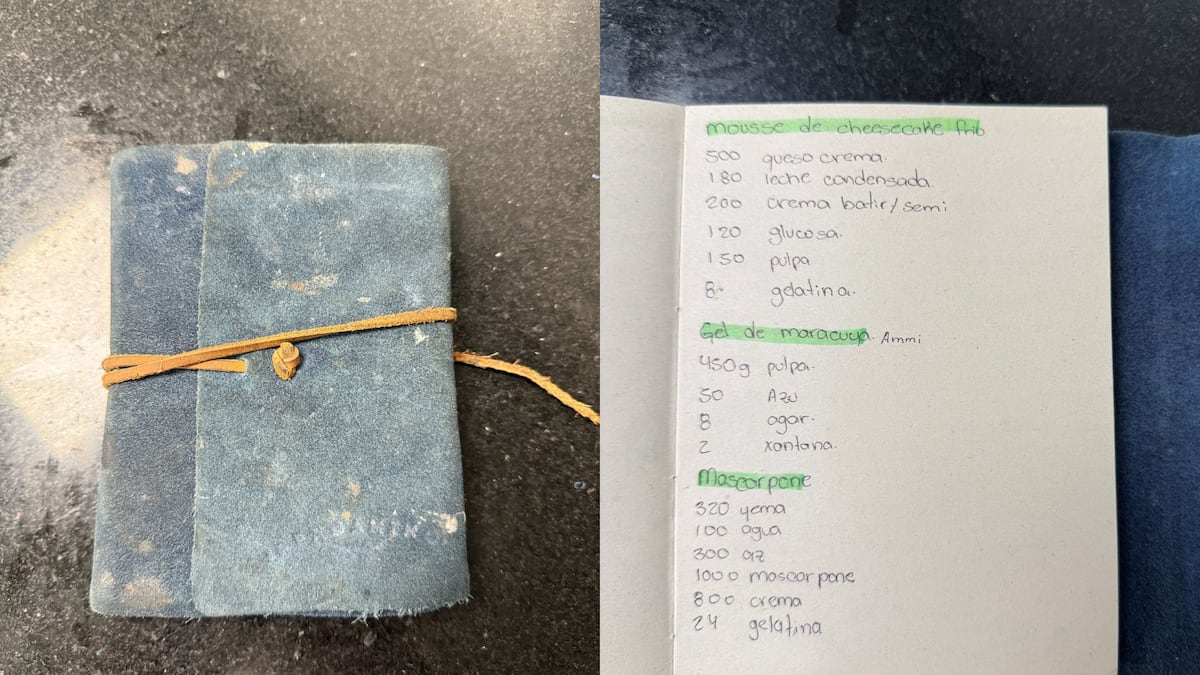 mousse de cheesecake frib
500 queso crema.
180 leche condensada.
200 crema batir/semi
120 glucosa.
150 pulpa
8. gelatina.
Gel de maracuya. Ammi
450g pulpa.
50 Azu
8 agar.
2 xantana.
Mascarpone
320 yema
100 agua
300 az
1000 mascarpone
800 crema
24 gelatina